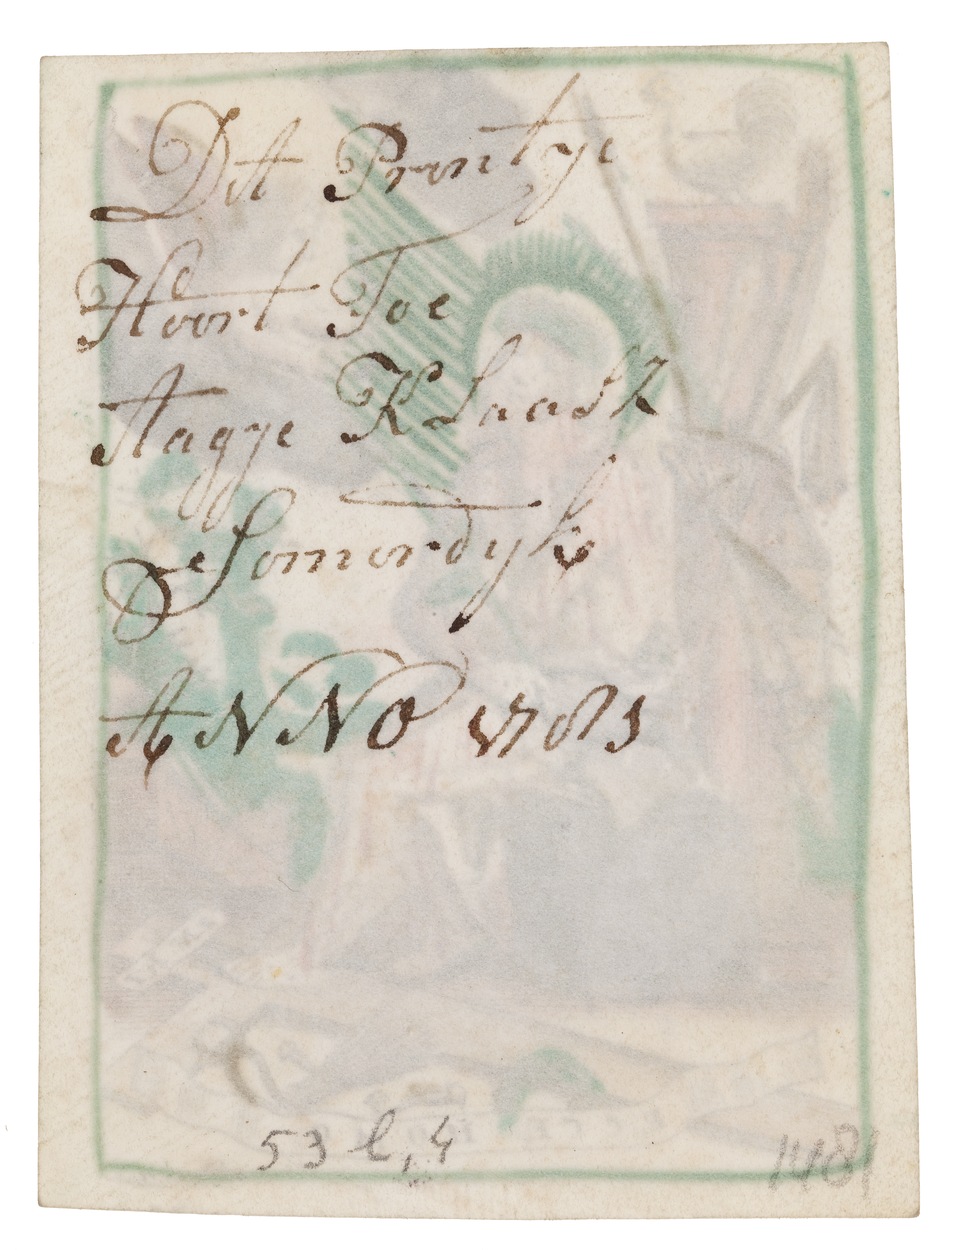 Dit Prentye
Hoort Toe
Aagye Klaask
Somerdyk
ANNO 1783
53 l, 4
1481